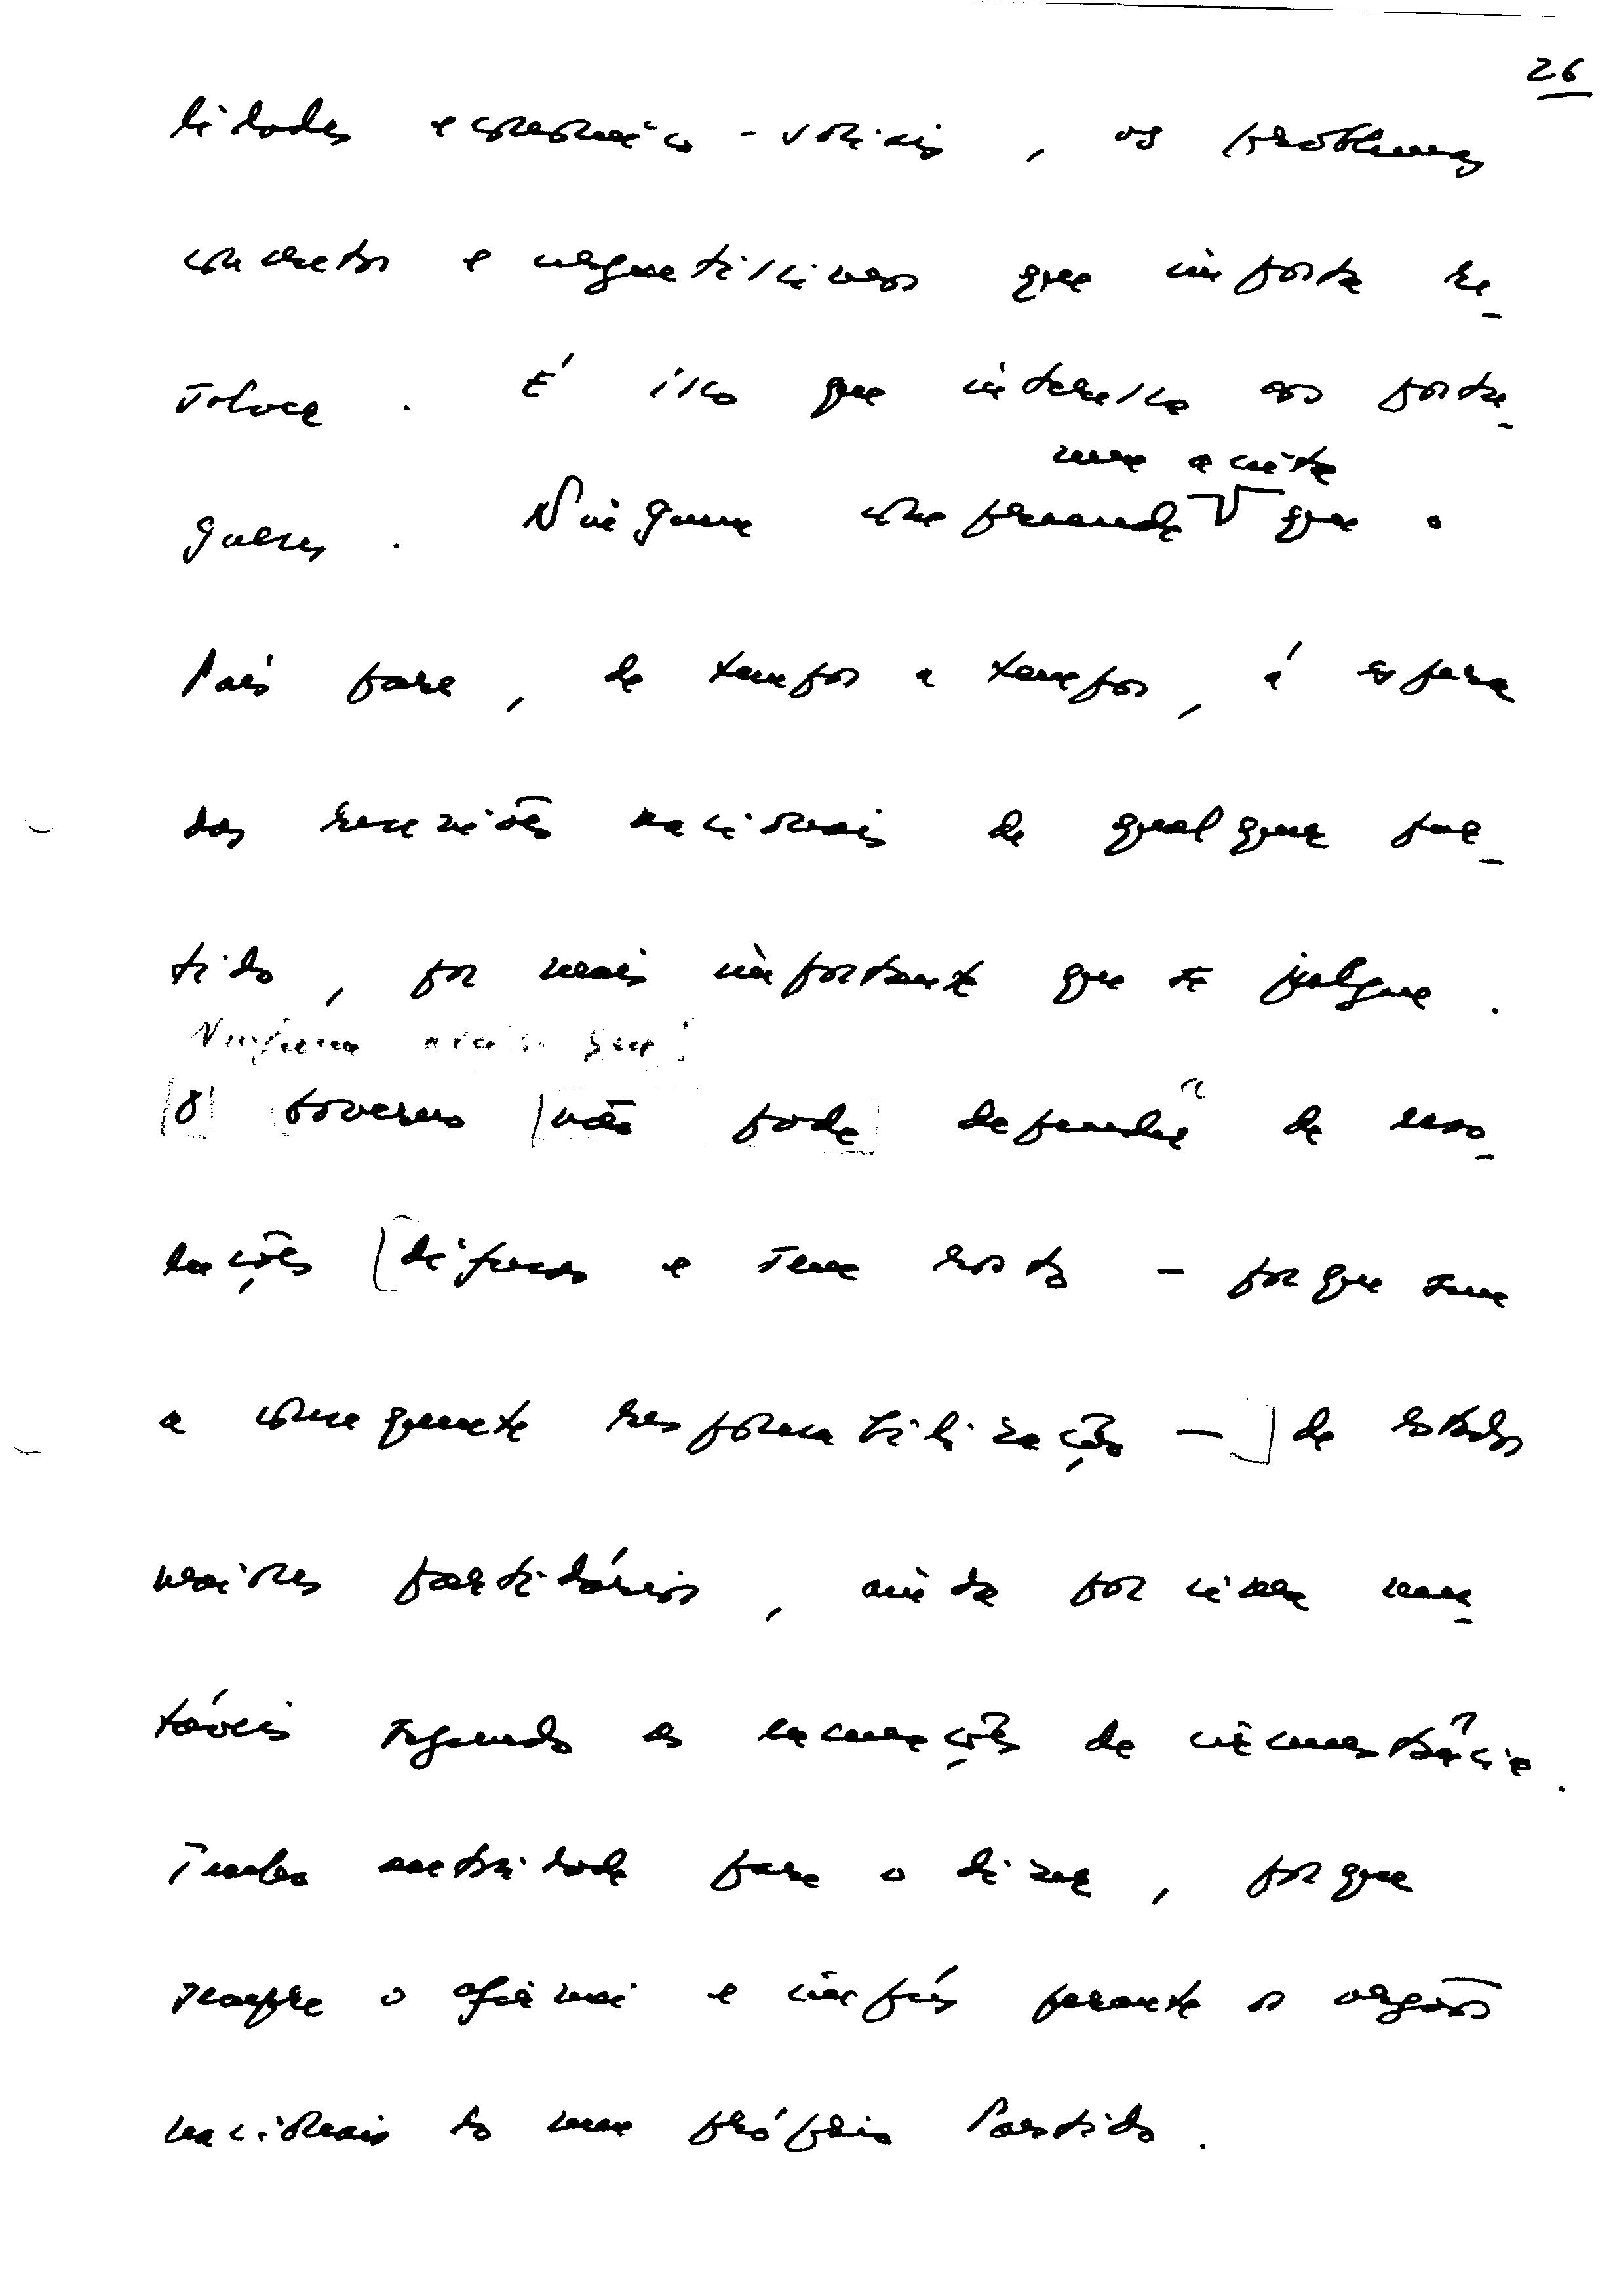 26
lidades económico-sociais, os problemas
concretos e urgentíssimos que importa re-
solver. É isso que interessa aos portu-
nem aceita
gueses. Ninguém compreende que o
País pare, de tempos a tempos, á espera
das reuniões nacionais de qualquer par-
tido, por mais importante que se julgue.
Ninguém que
O Governo não pode depender de reso-
luções difusas e sem rosto - porque sem
a consequente responsabilização - de estados
maiores partidários, ainda por cima mu-
táveis segundo as de circunstância.
Tenho autoridade para o dizer, porque
sempre o afirmei e impús perante os orgãos
nacionais do meu próprio Partido.